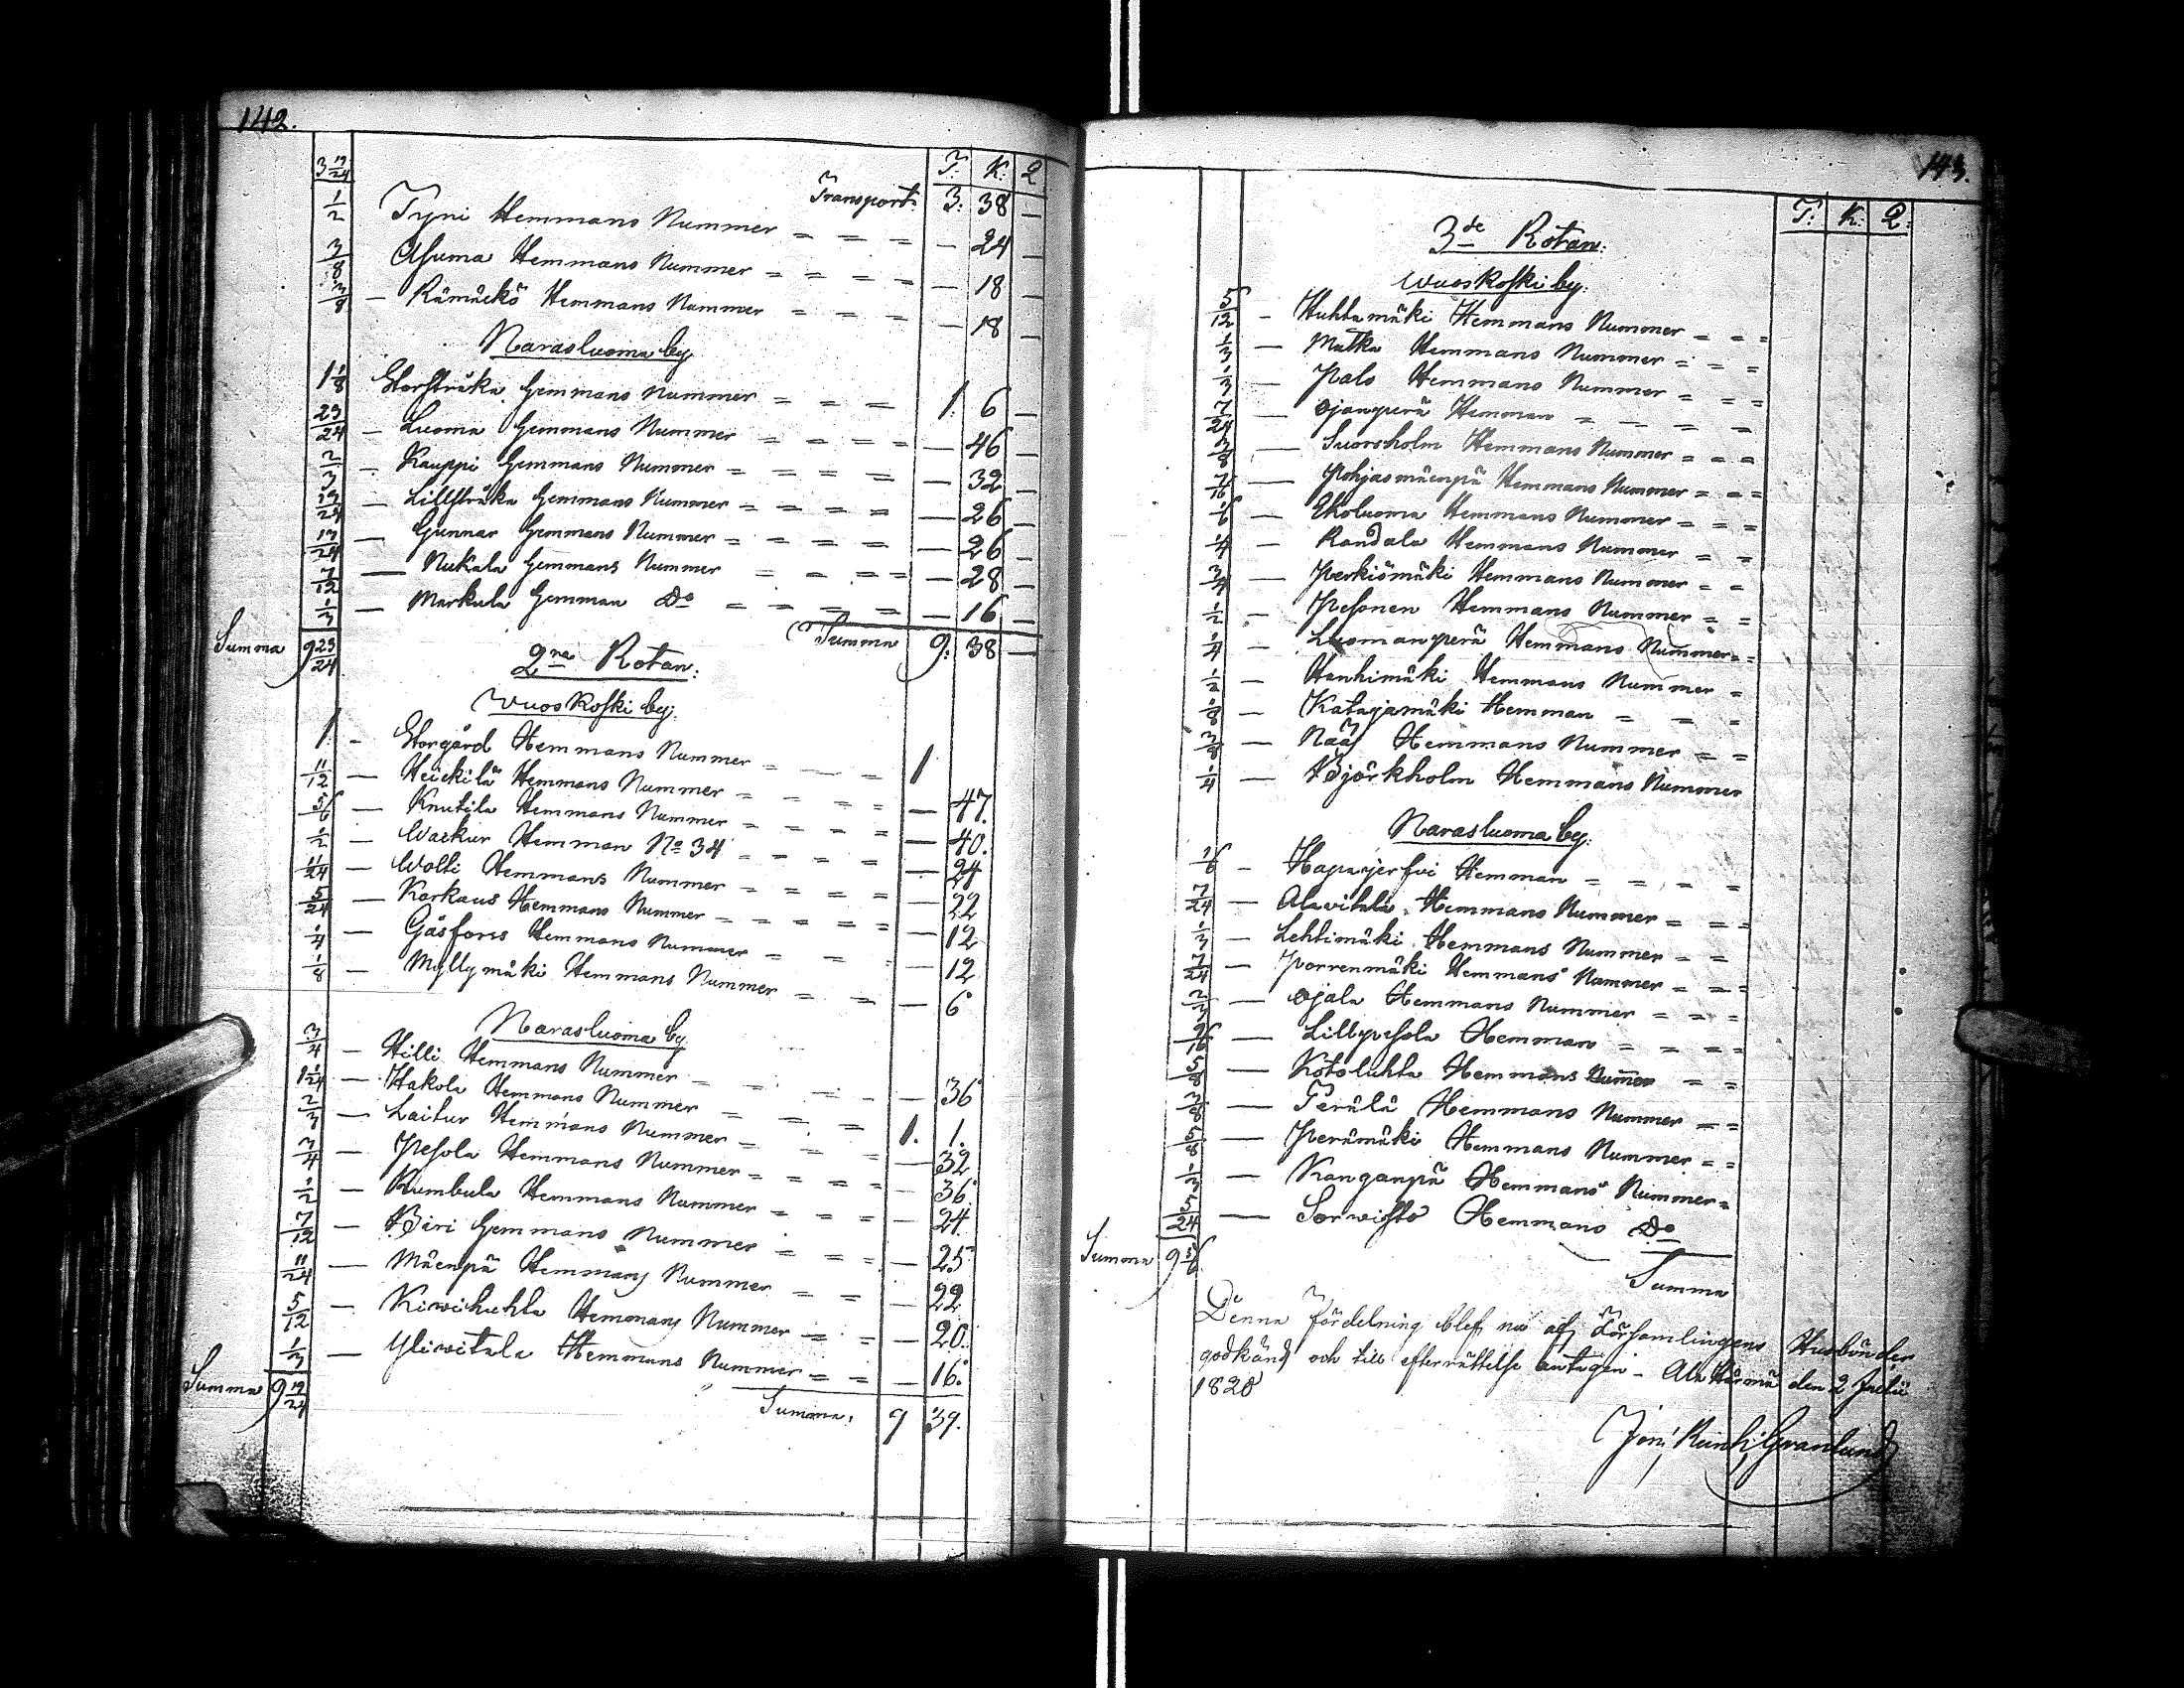 142.
3 19/24 T: K: Q
Transport 3: 38 —
1/2 Tyni Hemmans Nummer = = = — 24 —
3/8 Asuma Hemmans Nummer = = = = — 18 —
3/8 — Rämäckö Hemmans Nummer = = = — 18 —
Narasluoma by
1 1/8 Storstråka Hemmans Nummer = = = 1: 6 —
23/24 — Luoma Hemmans Nummer = = = = — 46 —
2/3 — Kauppi Hemmans Nummer = = = = — 32 —
13/24 — Lillstråka Hemmans Nummer = = = = — 26 —
13/24 — Gunnar Hemmans Nummer = = = = — 26 —
7/12 — Nukala Hemmans Nummer = = = = — 28 —
1/3 — Markula Hemman Do = = = = — 16 —
Summa 9 23/24 Summa 9: 38 —
2na Rotan:
Wuoskoski by:
1. — Storgård Hemmans Nummer = — = 1
11/12 — Heickilä Hemmans Nummer = = = = — 47.
5/6 — Knutila Hemmans Nummer = = = = — 40.
1/2 — Wackur Hemman No 34 = = = = — 24
11/24 — Wolti Hemmans Nummer = = = = — 22
5/24 — Korkaus Hemmans Nummer = = = = — 12
1/4 — Gåsfors Hemmans Nummer = = — 12
1/8 — Myllymäki Hemmans Nummer = = — 6
Narasluoma by
3/4 — Hilli Hemmans Nummer = = — 36
1 1/24 — Hakola Hemmans Nummer = = = 1. 1.
2/3 — Laitur Hemmans Nummer = = = — 32
3/4 — Pesola Hemmans Nummer = = = = — 36.
1/2 — Kumbula Hemmans Nummer = = = — 24.
7/12 — Biri Hemmans Nummer = = = — 25
11/24 — Mäenpä Hemmans Nummer = = — 22
5/12 — Kiwihuhta Hemmans Nummer = = — 20.
1/3 — Yliwitala Hemmans Nummer = = — 16.
Summa 9 19/24 Summa: 9 39.
143.
T: K: Q:
3de Rotan:
Wuoskoski by:
5/12 — Huhtamäki Hemmans Nummer = = =
1/3 — Matka Hemmans Nummer = = =
1/3 — Palo Hemmans Nummer = = =
7/24 — Ojanperä Hemman = = = =
3/8 — Suorsholm Hemmans Nummer = = =
7/16 — Pohjasmäenpä Hemmans Nummer = = =
1/6 — Ekoluoma Hemmans Nummer = = =
1/4 — Randala Hemmans Nummer = =
3/4 — Perkiömäki Hemmans Nummer = =
1/2 — Pesonen Hemmans Nummer = =
1/4 — Luomanperä Hemmans Nummer = =
1/2 — Hanhimäki Hemmans Nummer =
1/8 — Katajamäki Hemman = = =
3/8 — Nääs Hemmans Nummer = =
1/4 — Björkholm Hemmans Nummer
Narasluoma by:
1/6 — Hapajerfvi Hemman = = = =
7/24 — Alavitala Hemmans Nummer = = =
1/3 — Lehtimäki Hemmans Nummer = =
7/24 — Porrenmäki Hemmans Nummer = = =
2/3 — Ojala Hemmans Nummer = = =
9/16 — Lillpesola Hemman = = = =
5/8 — Kotoluhta Hemmans Numer = =
3/8 — Perälä Hemmans Nummer = =
5/8 — Perämäki Hemmans Nummer = =
1/3 — Kanganpä Hemmans Nummer =
5/24 — Sorwisto Hemmans Do
Summa 9 5/6 Summa
Denna fördelning blef nu af Församlingens Husbönder
godkänd och till efterrättelse antagen. Ala Härmä den 2 Julii
1820
Granlund